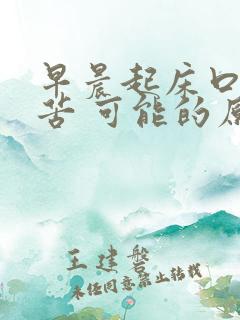 早晨起床口
苦 可能的原
王建磐
未经同意禁止转载